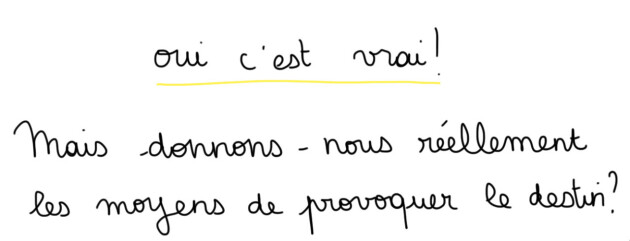 oui c'est vrai!
Mais donnons-nous réellement
les moyens de provoquer le destin?